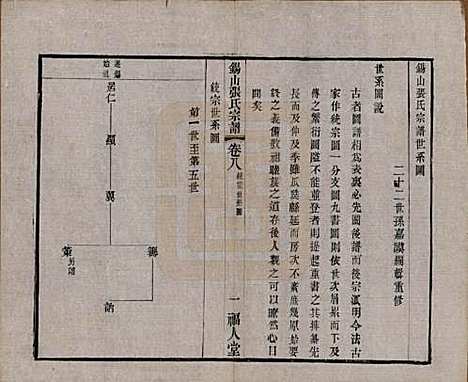 錫山張氏宗譜世系圖
二十二世孫嘉謨編輯重修
世系圖說
古者圖譜相為表裏必先圖後譜而後宗派明今法古
家作統宗圖一分支圖九書圖則依世次眉累而下及
傳之繁衍圖隘不能並登者則提起重書之其排纂先
長而及仲及季雖瓜瓞縣延而房次不紊庶幾原始要
終之義備敦祖睦族之道存後人觀之可以暸然心目
間矣
錫山張氏宗譜
卷八 統宗世系圖
一
福人堂
統宗世系圖
第一世至第五世
遷錫
始祖
思仁
顯
冀
鵬
詁
策 另詳